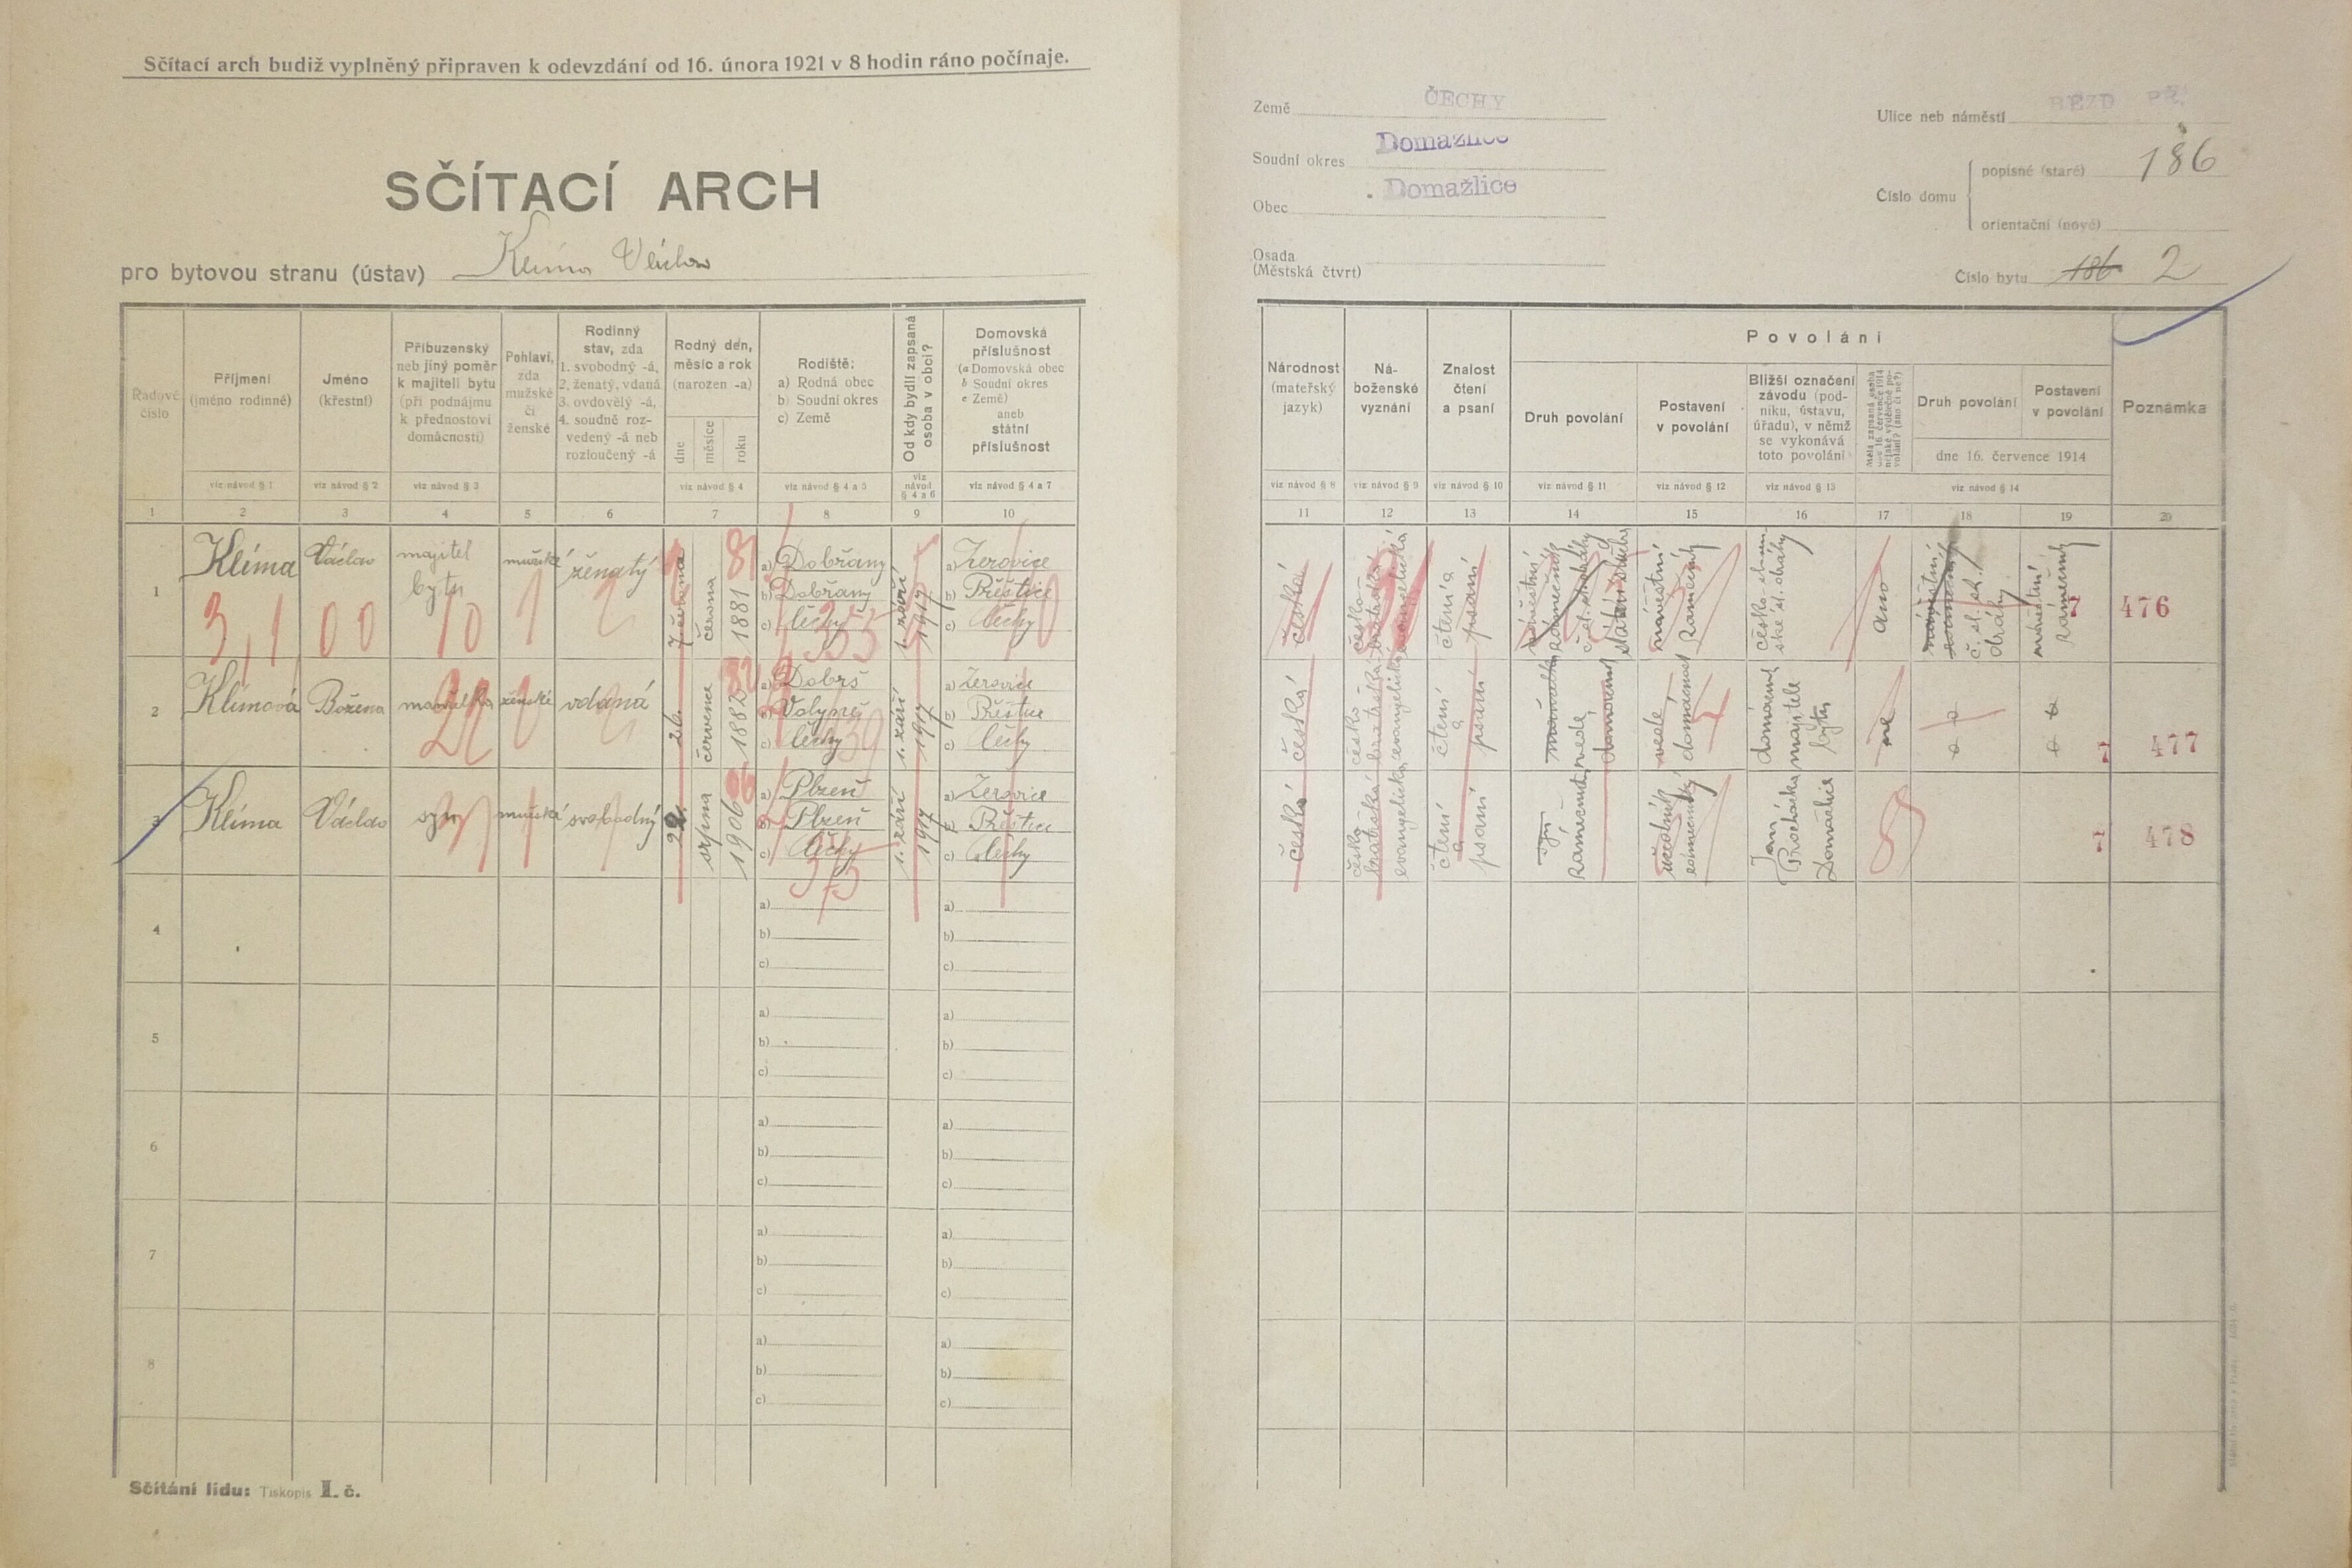 Sčítací arch budiž vyplněný připraven k odevzdání od 16. února 1921 v 8 hodin ráno počínaje.
SČÍTACÍ ARCH
pro bytovou stranu (ústav) Klíma Václav
Země ČECHY
Soudní okres Domažlice
Obec Domažlice
Osada
(Městská čtvrt)
Ulice neb náměstí BEZD PŘ.
Číslo domu
popisné (staré) 186
orientační (nové)
Číslo bytu 186 2
Řadové
číslo
Příjmení
(jméno rodinné)
viz návod § 1
Jméno
(křestní)
viz návod § 2
Příbuzenský
neb jiný poměr
k majiteli bytu
(při podnájmu
k přednostovi
domácnosti)
viz návod § 3
Pohlaví,
zda
mužské
či
ženské
Rodinný
stav, zda
1. svobodný -á,
2. ženatý, vdaná
3. ovdovělý -á,
4. soudně roz-
vedený -á neb
rozloučený -á
Rodný den,
měsíc a rok
(narozen -a)
dne
měsíce
roku
viz návod § 4
Rodiště:
a) Rodná obec
b) Soudní okres
c) Země
viz návod § 4 a 5
Od kdy bydlí zapsaná
osoba v obci?
viz
návod
§ 4 a 6
Domovská
příslušnost
(a Domovská obec
b Soudní okres
c Země)
aneb
státní
příslušnost
viz návod § 4 a 7
Národnost
(mateřský
jazyk)
viz návod § 8
Ná-
boženské
vyznání
viz návod § 9
Znalost
čtení
a psaní
viz návod § 10
Povolání
Druh povolání
viz návod § 11
Postavení
v povolání
viz návod § 12
Bližší označení
závodu (pod-
niku, ústavu,
úřadu), v němž
se vykonává
toto povolání
viz návod § 13
Druh povolání
Postavení
v povolání
dne 16. července 1914
viz návod § 14
Poznámka
1 2 3 4 5 6 7 8 9 10 11 12 13 14 15 16 17 18 19 20
1
Klíma
Václav
majitel
bytu
mužské
ženatý
června
1881
81
a) Dobřany
b) Dobřany
c) Čechy
1. září
1917
a) Žerovice
b) Přeštice
c) Čechy
3,1 00 10 1 2
353
česká
česko-
bratrská
evangelická
čtení a
psaní
návěstní
zámečník
ano
476
2
Klímová
Božena
manželka
ženské
vdaná
26.
července
1882
82
a) Dobrš
b) Volyně
c) Čechy
1. září
1917
a) Žerovice
b) Přeštice
c) Čechy
česká
česko-
bratrská
evangelická
čtení
a
psaní
vede
domácnost
domácnost
majitele
bytu
ne
477
3
Klíma
Václav
syn
mužské
svobodný
22.
srpna
1906
06
a) Plzeň
b) Plzeň
c) Čechy
375
1. září
1917
a) Žerovice
b) Přeštice
c) Čechy
česká
česko-
bratrská
evangelická
čtení
a
psaní
syn
učedník
zámečnický
Jan
Procházka
Domažlice
478
4
a)
b)
c)
a)
b)
c)
5
a)
b)
c)
a)
b)
c)
6
a)
b)
c)
a)
b)
c)
7
a)
b)
c)
a)
b)
c)
8
a)
b)
c)
a)
b)
c)
Sčítání lidu: Tiskopis I. č.